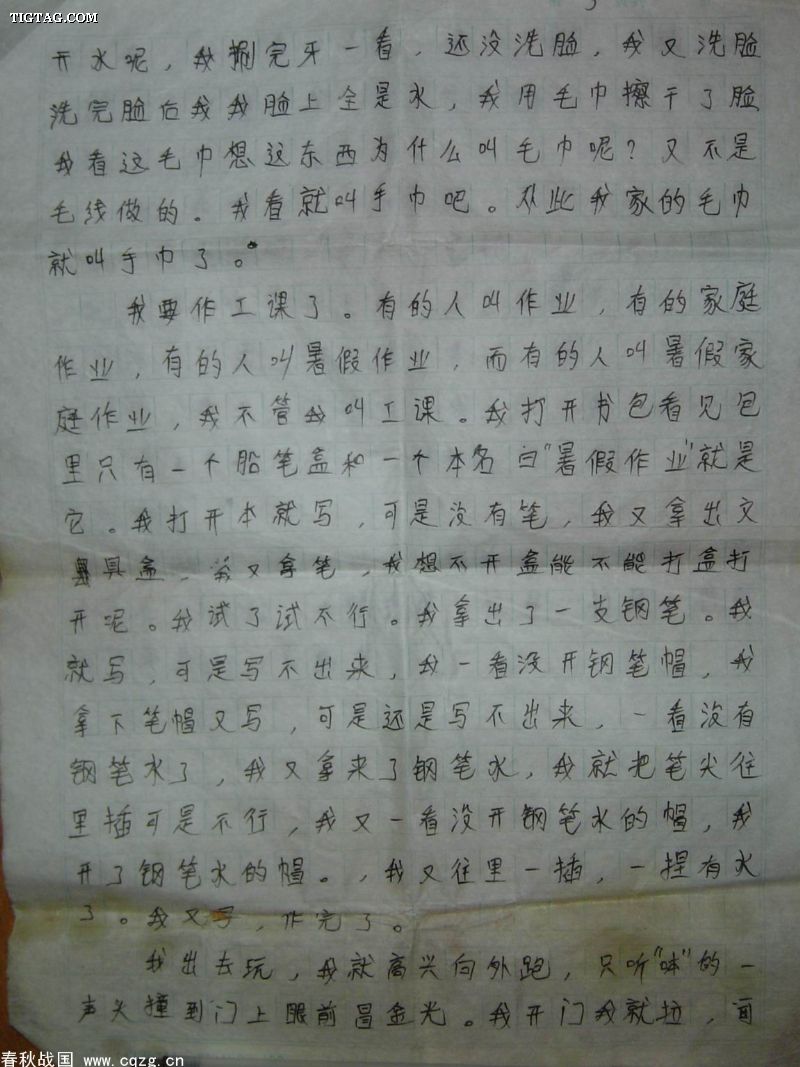 TIGTAG.COM
3
开水呢，我刷完牙一看，还没洗脸，我又洗脸
洗完脸后我我脸上全是水，我用毛巾擦干了脸
我看这毛巾想这东西为什么叫毛巾呢？又不是
毛线做的。我看就叫手巾吧。从此我家的毛巾
就叫手巾了。
我要作工课了。有的人叫作业，有的家庭
作业，有的人叫暑假作业，而有的人叫暑假家
庭作业，我不管我叫工课。我打开书包看见包
里只有一个铅笔盒和一个本名曰"暑假作业"就是
它。我打开本就写，可是没有笔，我又拿出文
具盒，我又拿笔，我想不开盒能不能打盒打
开呢。我试了试不行。我拿出了一支钢笔。我
就写，可是写不出来，我一看没开钢笔帽，我
拿下笔帽又写，可是还是写不出来，一看没有
钢笔水了，我又拿来了钢笔水，我就把笔尖往
里插可是不行，我又一看没开钢笔水的帽，我
开了钢笔水的帽。，我又往里一插，一捏有水
了。我又写，作完了。
我出去玩，我就高兴向外跑，只听"咚"的一
声头撞到门上眼前冒金光。我开门我就拉，可
春秋战国 www.cqzg.cn